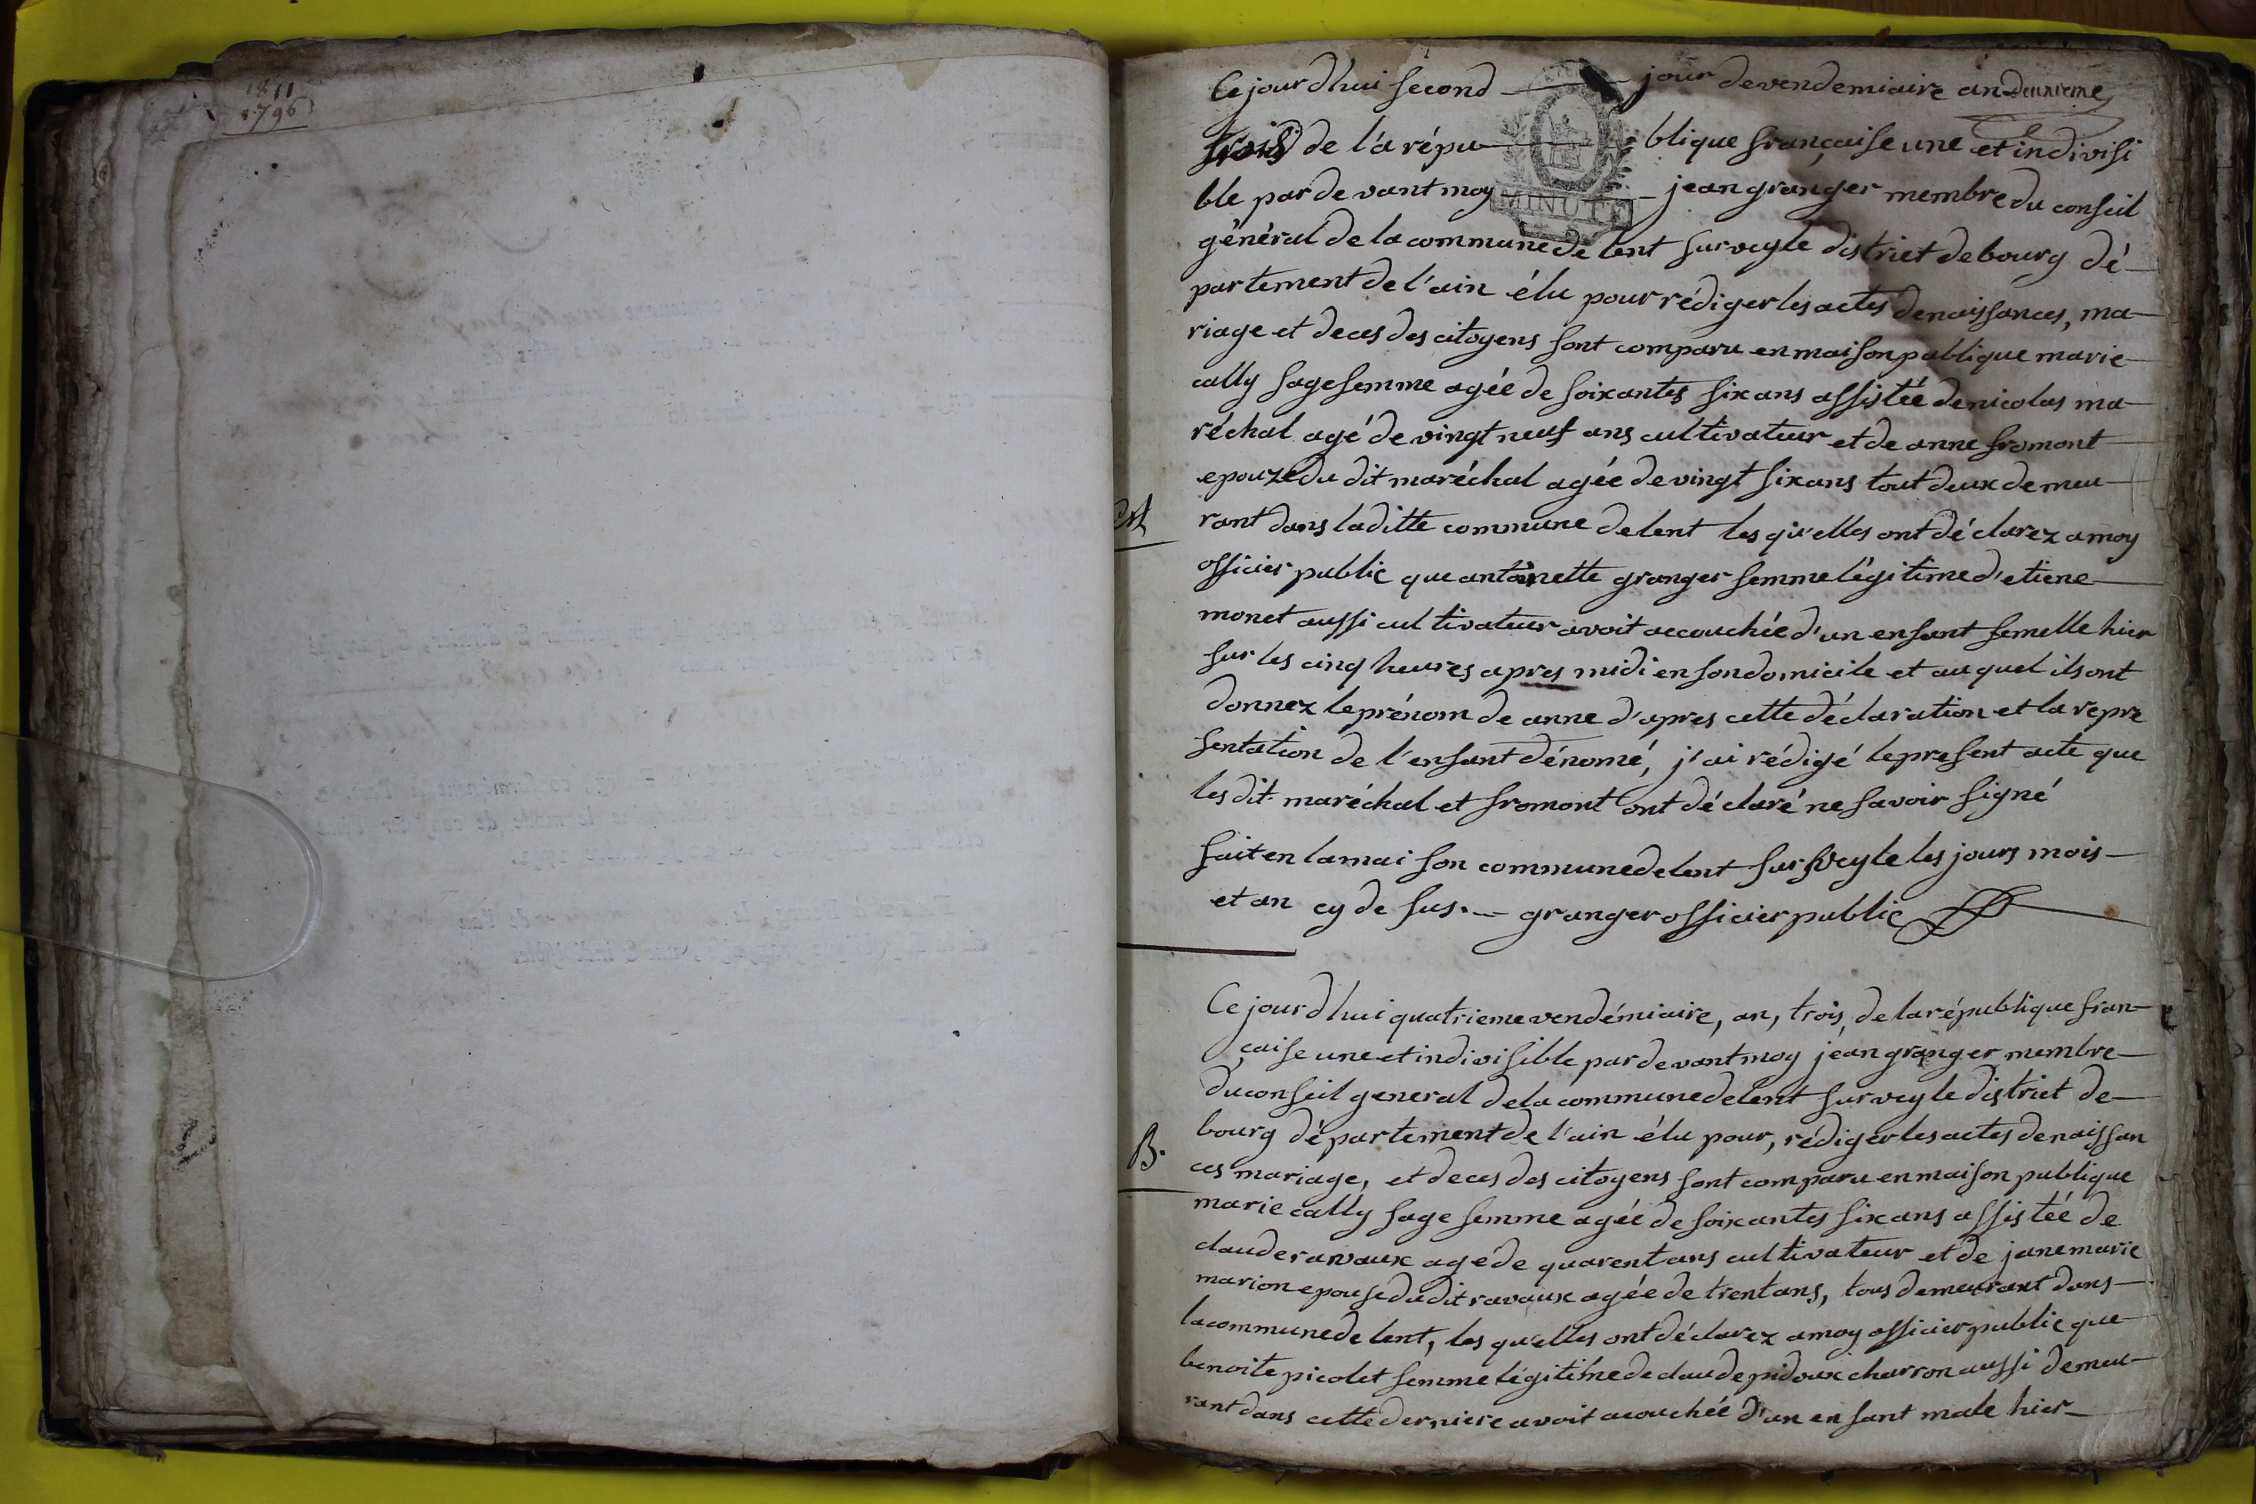 1811
1796
Ce jourdhui second jour de vendemiaire an deuxieme
trois de la répu blique française une et indivisi
MINUTE
ble par devant moy jean granger membre du conseil
général de la commune de lent sur veyle district de bourg dé
partement de l'ain élu pour rédiger les actes de naissances, ma
riage et deces des citoyens sont comparu en maison publique marie
cally sage femme agée de soixantes six ans assistée de nicolas ma
réchal agé de vingt neuf ans cultivateur et de anne fromont
epouze du dit maréchal agée de vingt six ans tout deux demeu
rant dans la ditte commune de lent les qu'elles ont déclarez a moy
officier public que antoinette granger femme légitime d'etiene
monet aussi cultivateur avoit accouchée d'un enfant femelle hier
sur les cinq heures apres midi en son domicile et au quel ils ont
donnez le prénom de anne d'apres cette déclaration et la repre
sentation de l'enfant dénomé, j'ai rédigé le present acte que
les dit maréchal et fromont ont déclaré ne savoir signé
fait en la maison commune de lent sur veyle les jours mois
et an cy de sus. granger officier public
Ce jourdhui quatrieme vendémiaire, an, trois, de la république fran
çaise une et indivisible par devant moy jean granger membre
du conseil general de la commune de lent sur veyle district de
bourg département de l'ain élu pour, rédiger les actes de naissan
B.
ces mariage, et deces des citoyens sont comparu en maison publique
marie cally sage femme agée de soixantes six ans assistée de
claude ravaux agé de quarent ans cultivateur et de jane marie
marion epouse du dit ravaux agée de trent ans, tous demeurant dans
la commune de lent, les qu'elles ont déclarez a moy officier public que
benoite picolet femme légitime de claude pidoux charron aussi demeu
rant dans cette derniere avoit acouchée d'un enfant male hier